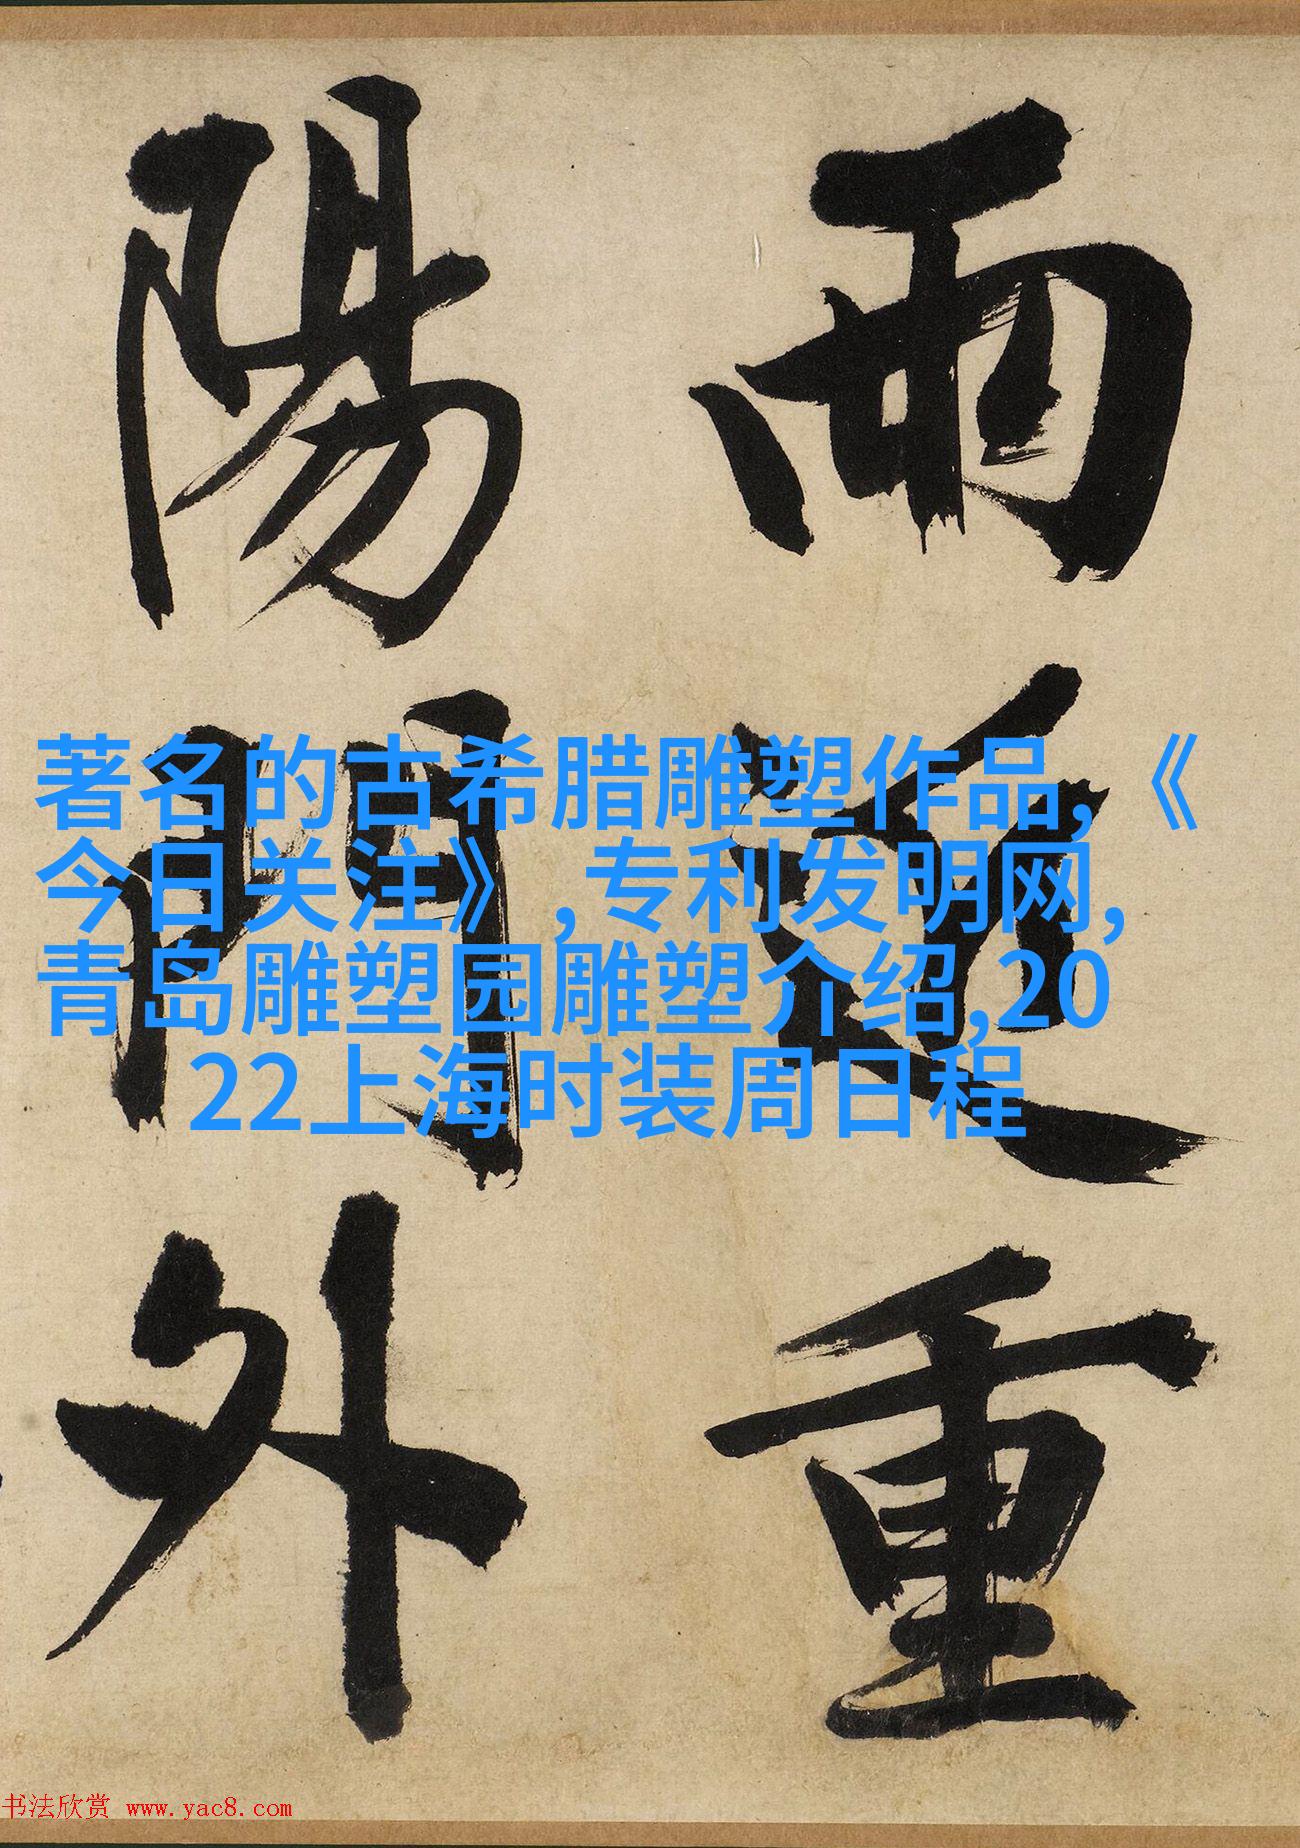 雨過重
陽門外
著名的古希腊雕塑作品,《
今日关注》,专利发明网,
青岛雕塑园雕塑介绍,20
22上海时装周日程
书法欣赏 www.yac8.com